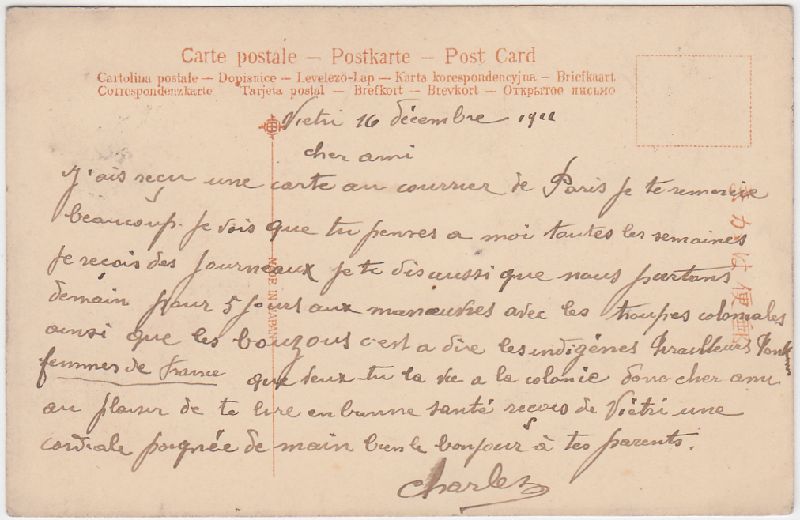 Carte postale – Postkarte – Post Card
Cartolina postale – Dopisnice – Levelező-Lap – Karta korespondencyjna – Briefkaart
Correspondenzkarte Tarjeta postal – Brefkort – Brevkort – Открытое письмо
Vietri 16 décembre 1911
cher ami
J'ais reçu une carte au courrier de Paris je te remercie
beaucoup. je vois que tu penses a moi toutes les semaines
je recois des journeaux je te dis aussi que nous partons
demain pour 5 jours aux manœuvres avec les troupes coloniales
ainsi que les c'est a dire les indigènes Tirailleurs
femmes de France que veux tu la vie a la colonie donc cher ami
au plaisir de te lire en bonne santé recois de Viétri une
cordiale poignée de main bien le bonjour à tes parents.
Charles
MADE IN JAPAN
きがは便郵